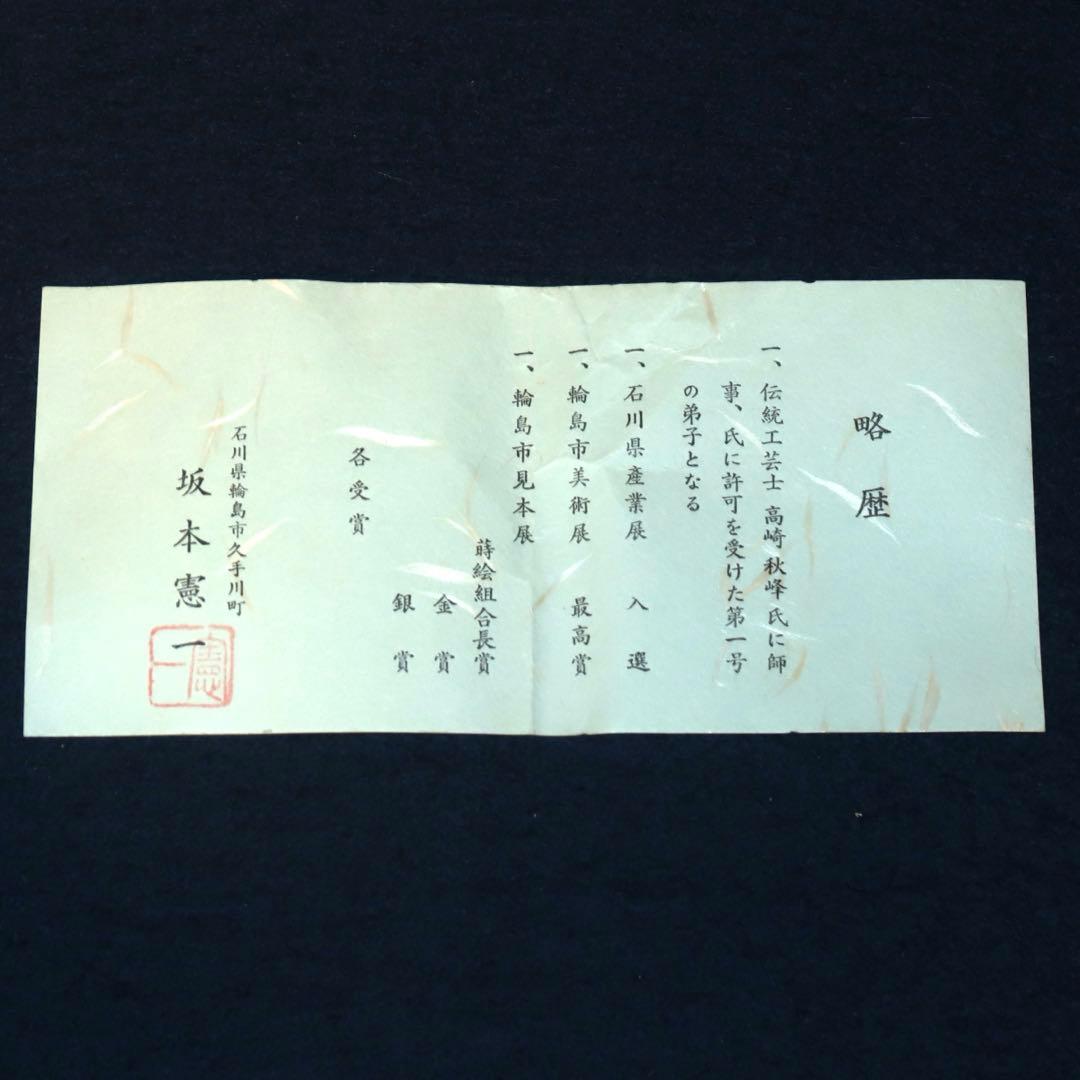 略歴
一、伝統工芸士 高崎秋峰氏に師
事、氏に許可を受けた第一号
の弟子となる
一、石川県産業展 入選
一、輪島市美術展 最高賞
一、輪島市見本展
蒔絵組合長賞
金賞
銀賞
各受賞
石川県輪島市久手川町
坂本憲一
憲一